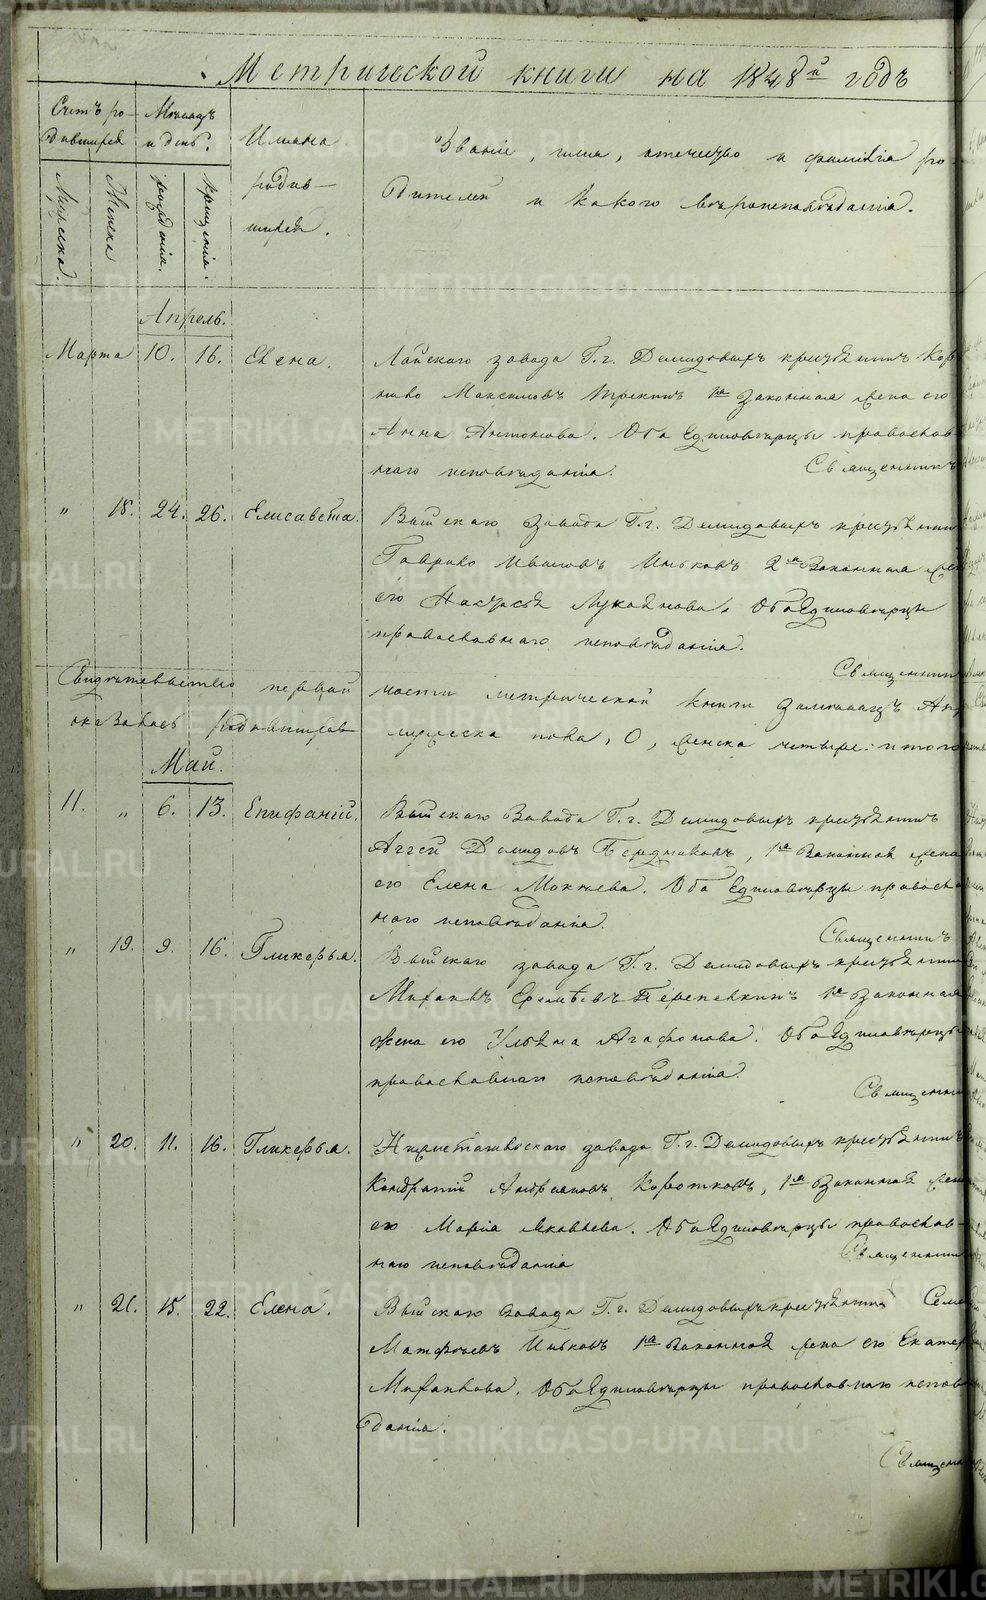 Метрической книги на 1848й годъ
Счетъ ро- Месяцъ
дившихся и день. Имена Званіе, имя, отечество и фамилія ро-
родив- дителей и какого вѣроисповѣданія.
Мужска. Женска рожденія. крещенія. шихся.
Апрель.
Марта 10. 16. Елена. Лайскаго завода Г.г. Демидовыхъ крестьянинъ Кор-
нило Максимовъ 1я законная жена его
Анна Антонова. Оба Единовѣрцы православ-
наго исповѣданія. Священникъ
" 18. 24. 26. Елисавета. Выйскаго завода Г.г. Демидовыхъ крестьянин
Гаврило Ивановъ 2я законная же
его Настасья Лукоянова. Оба Единовѣрцы
православнаго исповѣданія.
Священник
Свидѣтельство первой части метрической книги за месяцъ Ап
оказалось родившихся мужеска пола, 0, женска четыре. итого
Май.
11. " 6. 13. Епифаній. Выйскаго Завода Г.г. Демидовыхъ крестьянинъ
Аггей Демидовъ Бердниковъ, 1я Законная жена
его Елена Мокіева. Оба Единовѣрцы правосла
наго исповѣданія.
Священникъ
" 19. 9. 16. Гликерья. Выйскаго завода Г.г. Демидовыхъ крестьянин
Михаилъ Еремѣевъ Перепелкинъ 1я Законная
жена его Ульяна Агафонова. Оба Единовѣрцы
православнаго исповѣданія.
Священни
" 20. 11. 16. Гликерья. Нижнетагильскаго завода Г.г. Демидовыхъ крестьянинъ
Кондратій Андреяновъ Коротковъ, 1я Законная жен
его Марія Яковлева. Оба Единовѣрцы православ-
наго исповѣданія Священник
" 21. 15. 22. Елена. Выйскаго завода Г.г. Демидовыхъ крестьянин Семе
Матфѣевъ 1я Законная жена его Екатер
Михайлова. Оба Единовѣрцы православнаго испов
данія.
Священ
METRIKI.GASO-URAL.RU